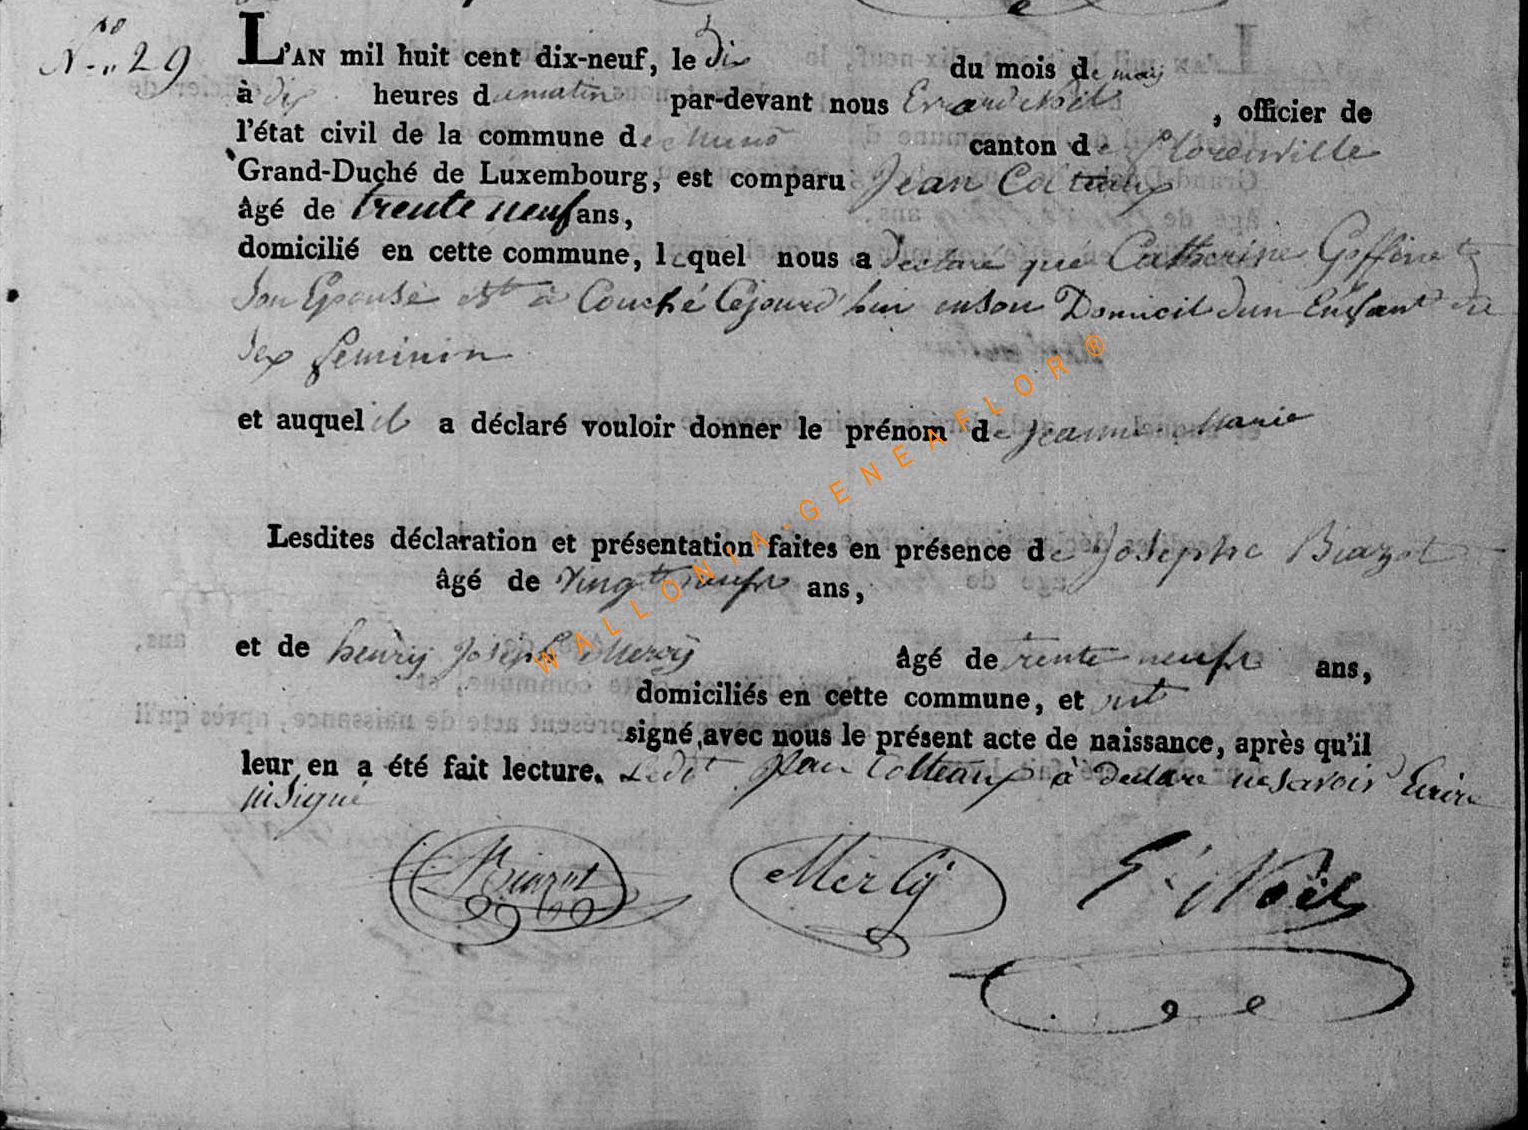 N.ro 29
L'AN mil huit cent dix-neuf, le dix du mois de may
à dix heures du matin par-devant nous Errard Noël, officier de
l'état civil de la commune de Muno canton de Florenville
Grand-Duché de Luxembourg, est comparu Jean Colteaux
âgé de trente neuf ans,
domicilié en cette commune, lequel nous a declaré que Catherine Goffinet
Son Epouse est à Couché Cejourd'hui en son Domicil d'un Enfant de
Sex feminin
et auquel il a déclaré vouloir donner le prénom de Jeanne Marie
Lesdites déclaration et présentation faites en présence de Josephe Biazot
âgé de vingt neufe ans,
et de henry Joseph Mercÿ âgé de trente neufe ans,
domiciliés en cette commune, et ont
signé avec nous le présent acte de naissance, après qu'il
leur en a été fait lecture. Ledit Jean Colteaux à declaré ne savoir Ecrire
ni signé
Biazot Mercÿ E. Noël
WALLONIA-GENEAFLOR®